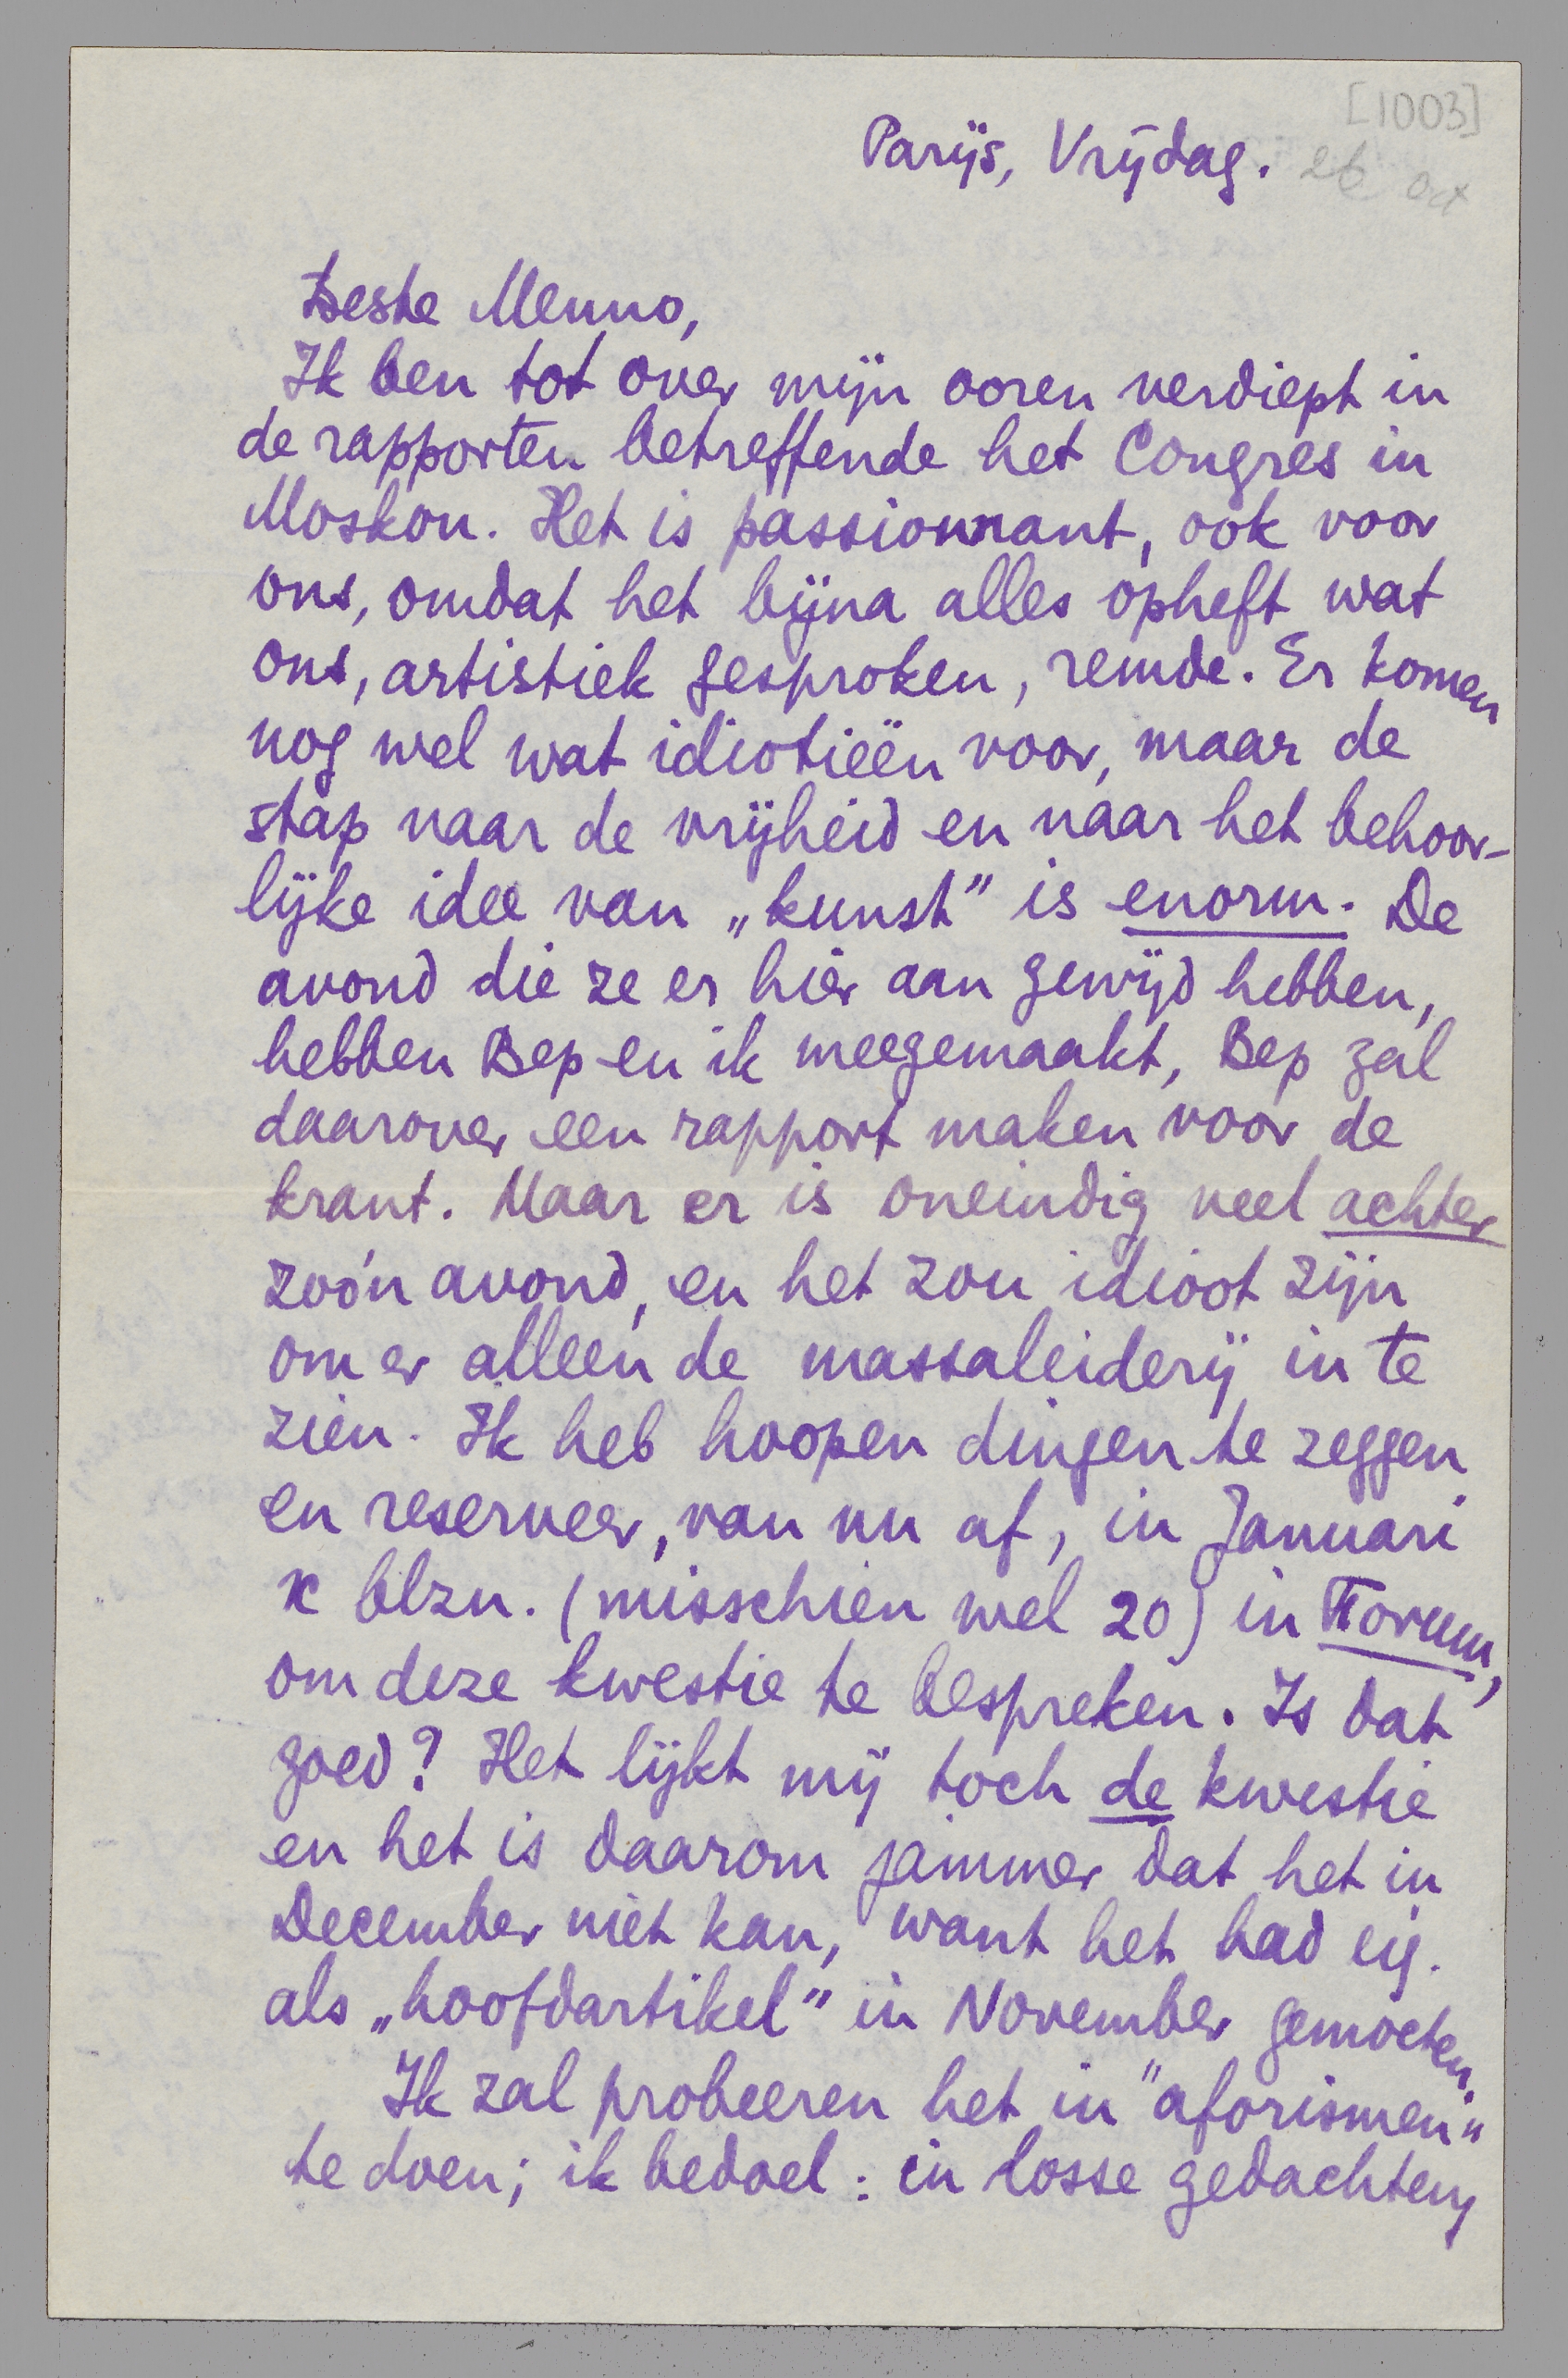 [1003]
Parijs, Vrijdag. 26 Oct
Beste Menno,
Ik ben tot over mijn ooren verdiept in
de rapporten betreffende het Congres in
Moskou. Het is passionnant, ook voor
ons, omdat het bijna alles opheft wat
ons, artistiek gesproken, remde. Er komen
nog wel wat idiotieën voor, maar de
stap naar de vrijheid en naar het behoor-
lijke idee van „kunst" is enorm. De
avond die ze er hier aan gewijd hebben,
hebben Bep en ik meegemaakt, Bep zal
daarover een rapport maken voor de
krant. Maar er is oneindig veel achter
zoo'n avond, en het zou idioot zijn
om er alleen de massaleiderij in te
zien. Ik heb hoopen dingen te zeggen
en reserveer, van nu af, in Januari
x blzn. (misschien wel 20) in Forum,
om deze kwestie te bespreken. Is dat
goed? Het lijkt mij toch de kwestie
en het is daarom jammer dat het in
December niet kan, want het had eig.
als „hoofdartikel" in November gemoeten.
Ik zal probeeren het in "aforismen"
te doen; ik bedoel: in losse gedachten,